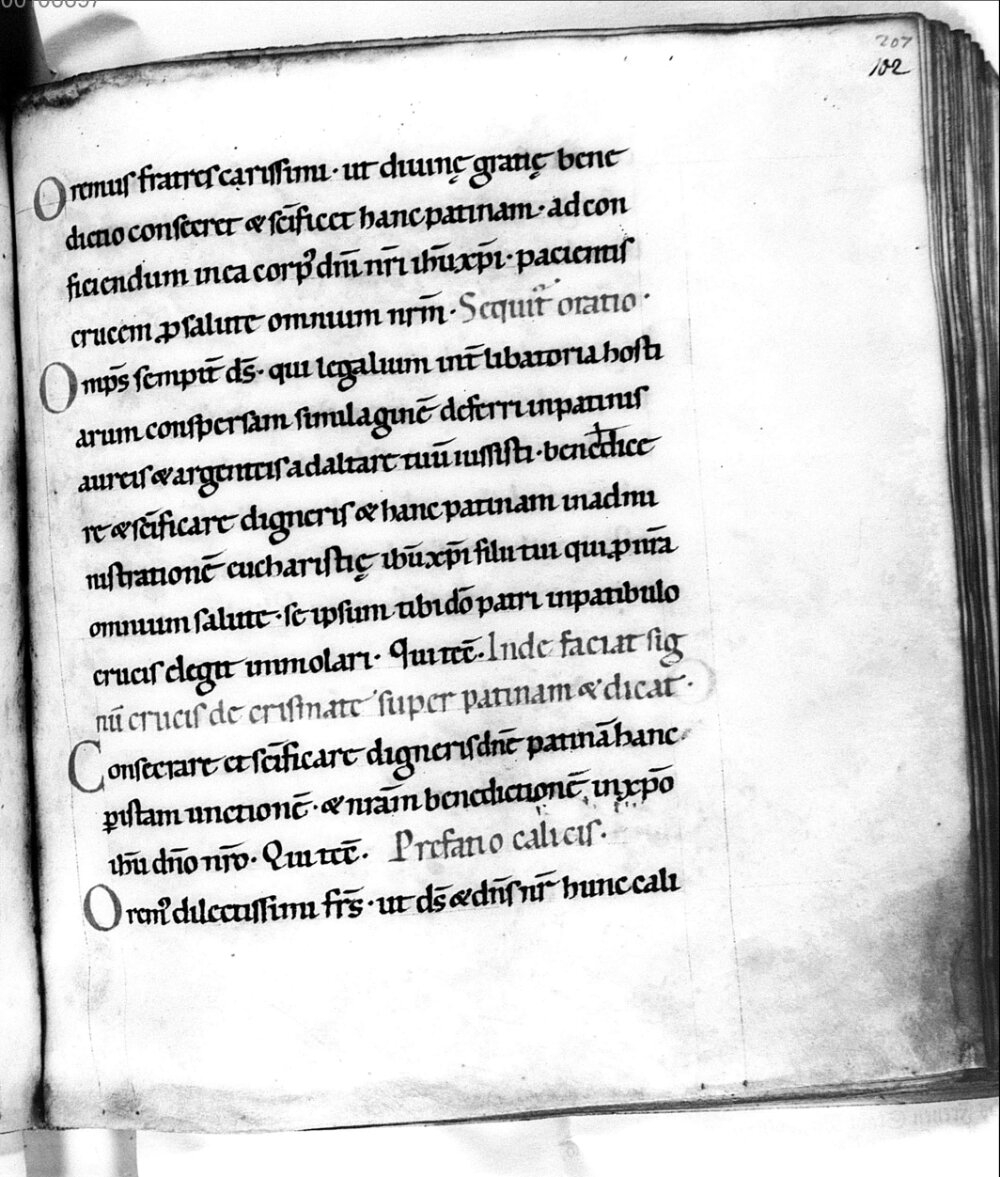 207
102
Oremus fratres carissimi· ut diuinę gratię bene
dictio consecret & sc̄ificet hanc patinam· ad con
ficiendum in ea corpꝰ dn̄i nr̄i ih̄u xp̄i· pacientis
crucem ꝓ salute omnium nr̄m· Sequit᷑ oratio·
Omp̄s sempit̄ ds̄· qui legalium inst̄ libatoria hosti
arum conspersam similaginē deferri in patinis
aureis & argenteis ad altare tuū iussisti· bene✝dice
re & sc̄ificare digneris & hanc patinam in admi
nistrationē eucharistię ih̄u xp̄i filii tui qui ꝓ nr̄a
omnium salute· se ipsum tibi dō patri in patibulo
crucis elegit immolari· Qui tec̄· Inde faciat sig
nū crucis de crismate super patinam & dicat·
Consecrare et sc̄ificare digneris dn̄e patinā hanc
ꝑ istam unctionē· & nr̄am benedictionē in xp̄o
ih̄u dn̄o nr̄o· Qui tec̄· Prefatio calicis·
Oremꝰ dilectissimi frs̄· ut ds̄ & dn̄s nr̄ hunc cali